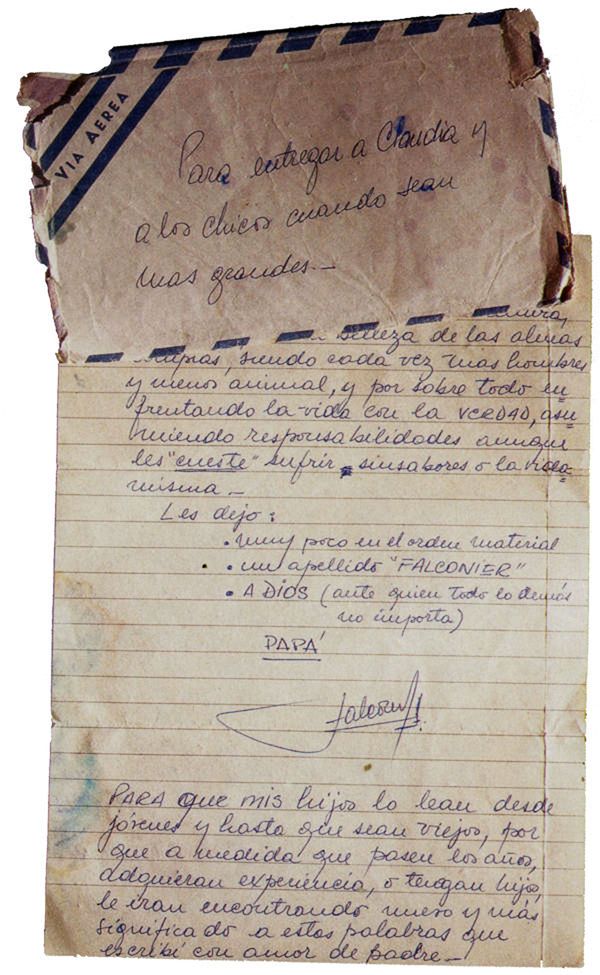 VIA AEREA
Para entregar a Claudia y
a los chicos cuando sean
mas grandes.—
belleza de las almas
limpias, siendo cada vez mas hombres
y menos animal, y por sobre todo en=
frentando la vida con la VERDAD, asu=
miendo responsabilidades aunque
les "cueste" sufrir, sinsabores o la vida
misma —
Les dejo:
• muy poco en el orden material
• un apellido "FALCONIER"
• A DIOS (ante quien todo lo demás
no importa)
PAPÁ
PARA que mis hijos lo lean desde
jóvenes y hasta que sean viejos, por
que a medida que pasen los años,
adquieran experiencia, o tengan hijos,
le iran encontrando nuevo y más
significado a estos palabras que
escribí con amor de padre —